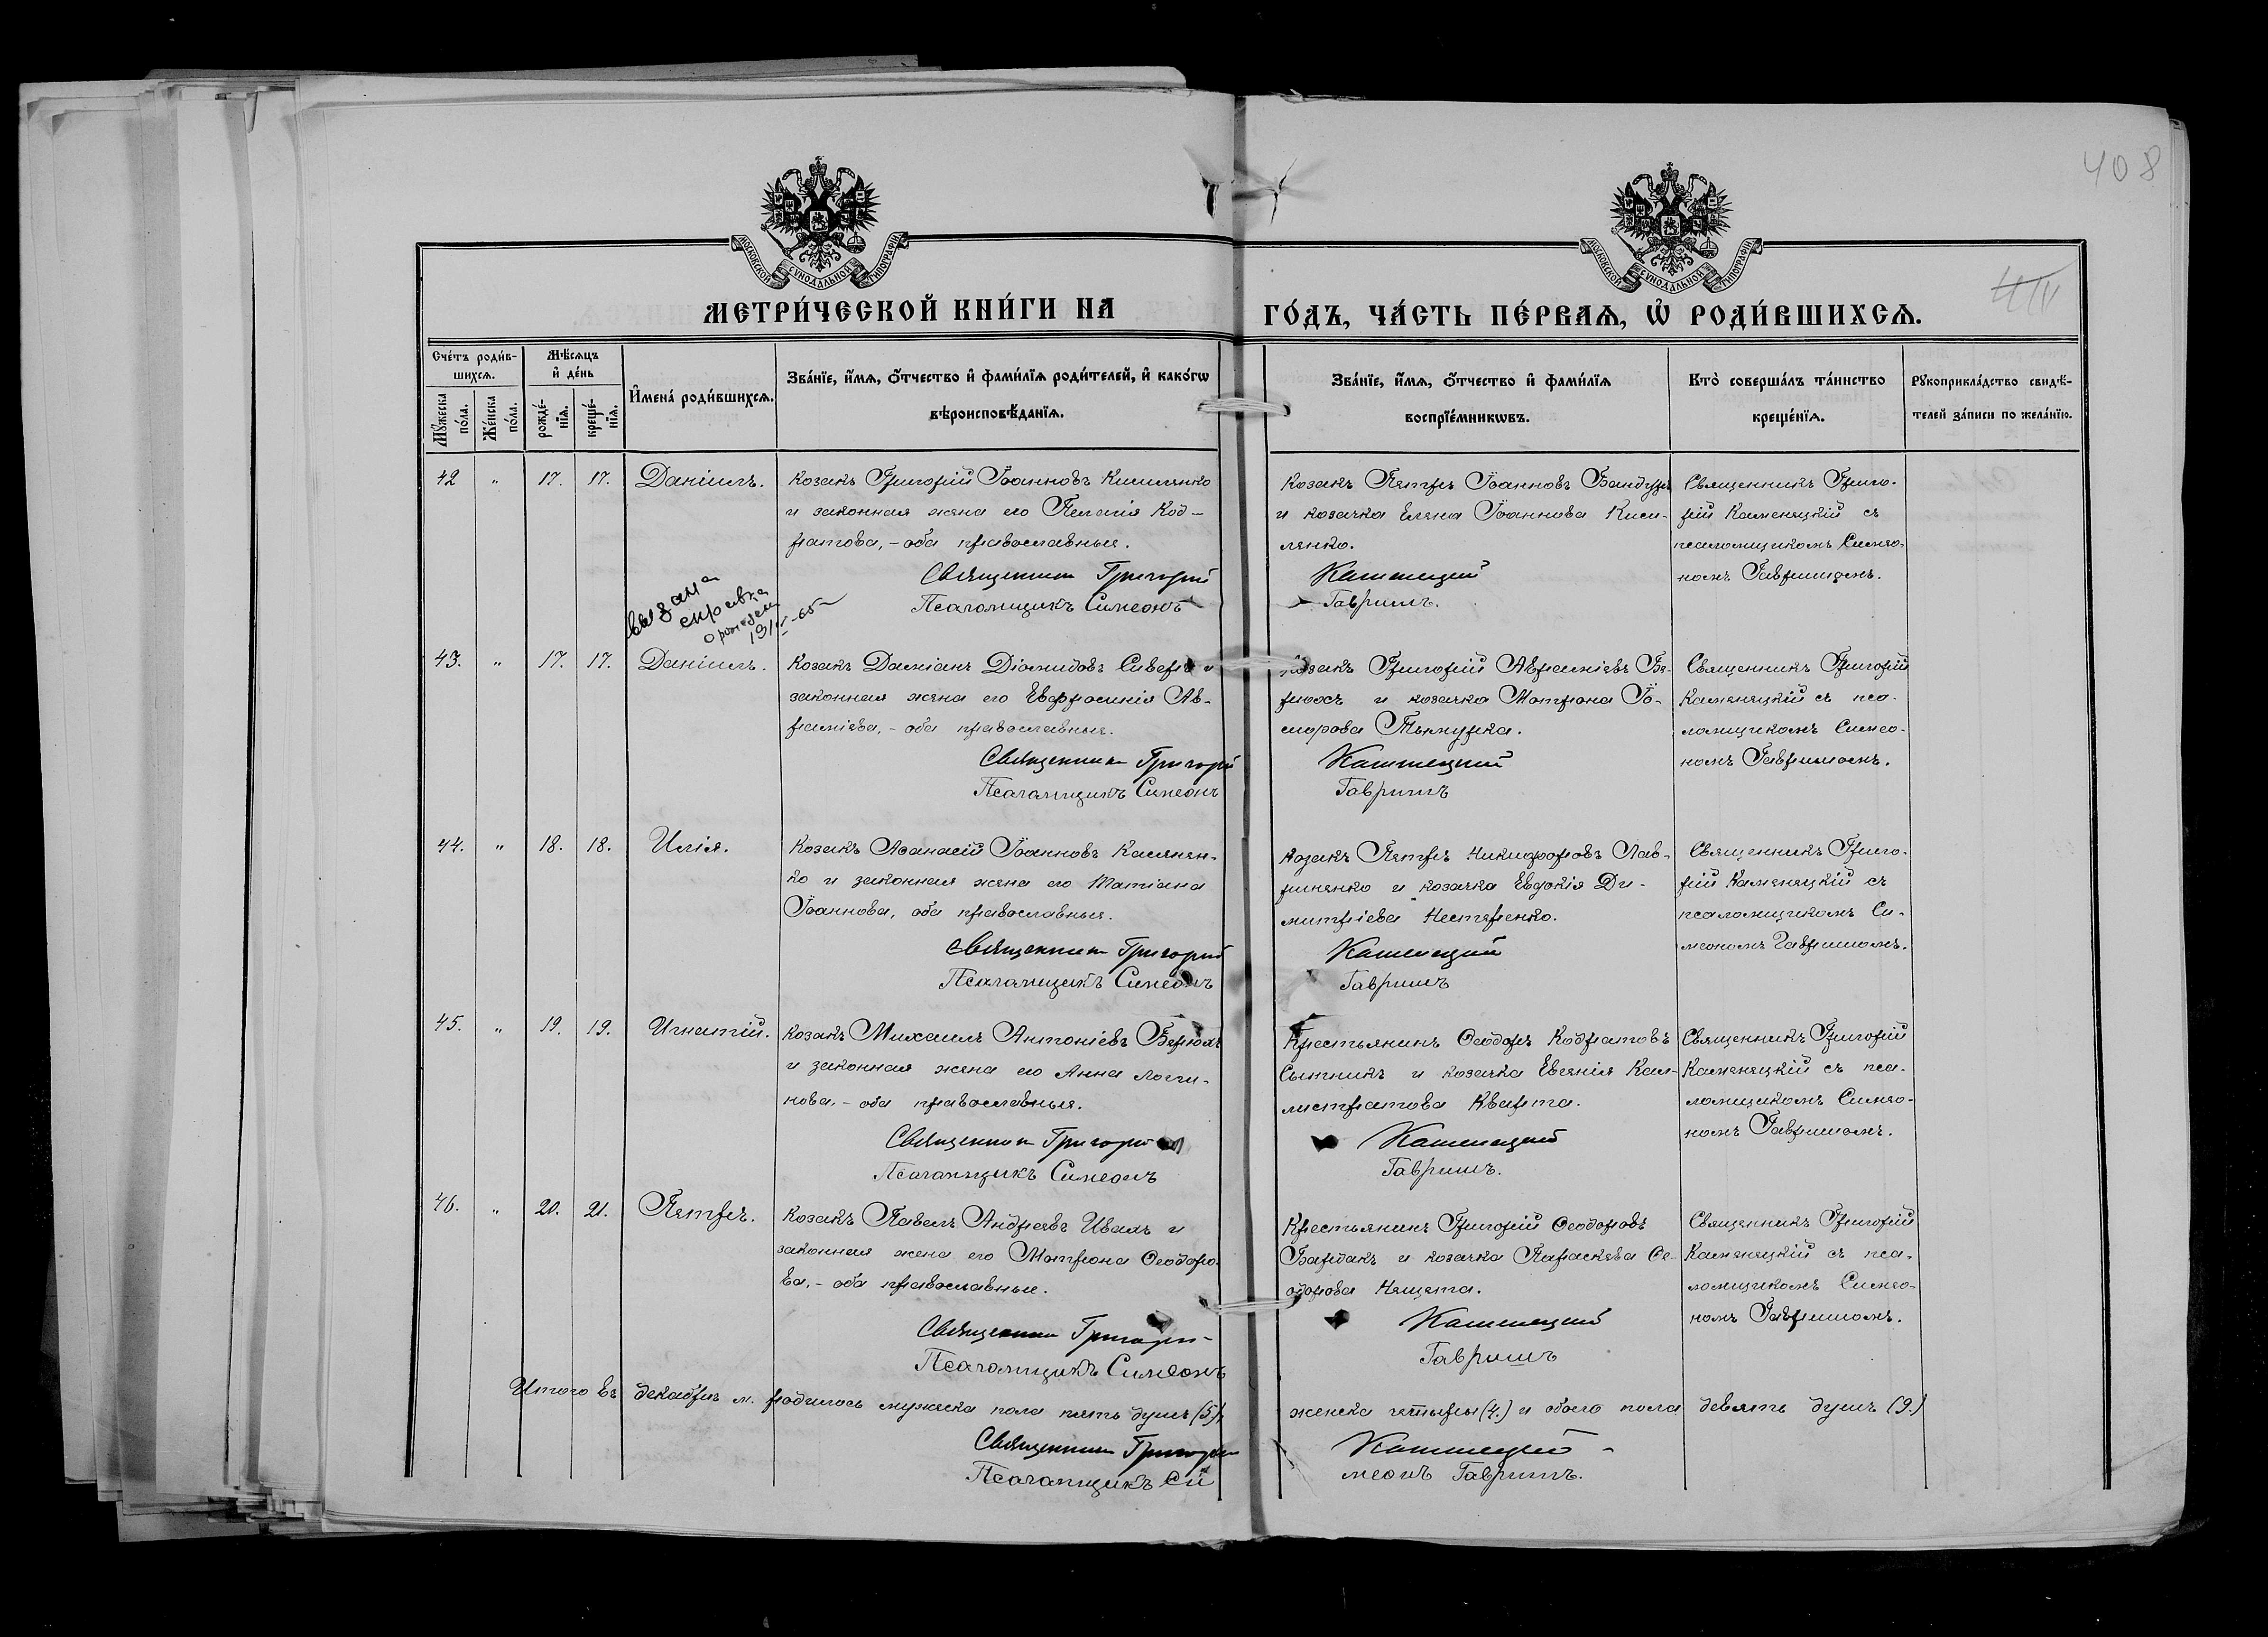 408
МОСКОВСКОЙ СѴНОДАЛЬНОЙ ТИПОГРАФІИ
МОСКОВСКОЙ СѴНОДАЛЬНОЙ ТИПОГРАФІИ
МЕТРИ́ЧЕСКОЙ КНИ́ГИ НА ГО́ДЪ, ЧА́СТЬ ПЕ́РВАѦ, Ѡ҆ РОДИ́ВШИХСѦ.
Сче́тъ роди́в-
шихсѧ.
Мꙋ́жеска по́ла.
Же́нска по́ла.
Мѣ́сѧцъ
и҆ де́нь
рожде́-нїѧ.
креще́-нїѧ.
И҆мена̀ роди́вшихсѧ.
Зва́нїе, и҆́мѧ, ѻ҆́тчество и҆ фами́лїѧ роди́телей, и҆ како́гѡ
вѣроисповѣ́данїѧ.
Зва́нїе, и҆́мѧ, ѻ҆́тчество и҆ фами́лїѧ
воспрїе́мникѡвъ.
Кто̀ соверша́лъ та́инство
креще́нїѧ.
Рꙋкоприкла́дство свидѣ́-
телей за́писи по жела́нїю.
42 " 17. 17. Даніилъ.
Козакъ Григорій Іоанновъ Кисиленко
и законная жена его Пелагія Код-
ратова, - оба православные.
Священник Григорий
Псаломщикъ Симеонъ
Козакъ Петръ Іоанновъ Бандура
и козачка Елена Іоаннова Киси-
ленко.
Каменецкий
Гавришъ.
Священникъ Григо-
рій Каменецкій съ
псаломщикомъ Симео-
номъ Гавришомъ.
выдана
справка
о рожден
43. " 17. 17. Даніилъ.
Козакъ Даміанъ Діомидовъ Сиверъ и
законная жена его Евфросинія Ав-
раміева, - оба православные.
Священник Григорий
Псаломщикъ Симеонъ
Козакъ Григорій Авраміевъ Бе-
рюхъ и козачка Мотрона Іо-
Каменецкий
Гавришъ
Священникъ Григорій
Каменецкій съ пса-
ломщикомъ Симео-
номъ Гавришомъ.
44. " 18. 18. Илія.
Козакъ Аѳанасій Іоанновъ Касянен-
ко и законная жена его Татіана
Іоаннова, оба православные.
Священник Григорий
Псаломщикъ Симеонъ
Козакъ Петръ Никифоровъ Лав-
риненко и козачка Евдокія Ди-
митріева Нестеренко.
Каменецкий
Гавришъ
Священникъ Григо-
рій Каменецкій съ
псаломщикомъ Си-
меономъ Гавришомъ.
45. " 19. 19. Игнатій.
Козакъ Михаилъ Антоніевъ Берюхъ
и законная жена его Анна Логги-
нова, - оба православные.
Священник Григорий
Псаломщикъ Симеонъ
Крестьянинъ Ѳеодоръ Кодратовъ
Сытникъ и козачка Евгенія Кал-
листратова Кварта.
Каменецкий
Гавришъ.
Священникъ Григорій
Каменецкій съ пса-
ломщикомъ Симео-
номъ Гавришомъ.
46. " 20. 21. Петръ.
Козакъ Павелъ Андреевъ Ивахъ и
законная жена его Мотрона Ѳеодоро-
ва, - оба православные.
Священник Григорий
Псаломщикъ Симеонъ
Крестьянинъ Григорій Ѳеодоровъ
Бардакъ и козачка Параскева Ѳе-
одорова Нещета.
Каменецкий
Гавришъ
Священникъ Григорій
Каменецкій съ пса-
ломщикомъ Симео-
номъ Гавришомъ.
Итого въ декабрѣ м. родилось мужеска пола пять душъ (5), женска четыре (4.) и обоего пола девять душъ (9.)
Священник Григорий Каменецкий
Псаломщикъ Симеонъ Гавришъ.